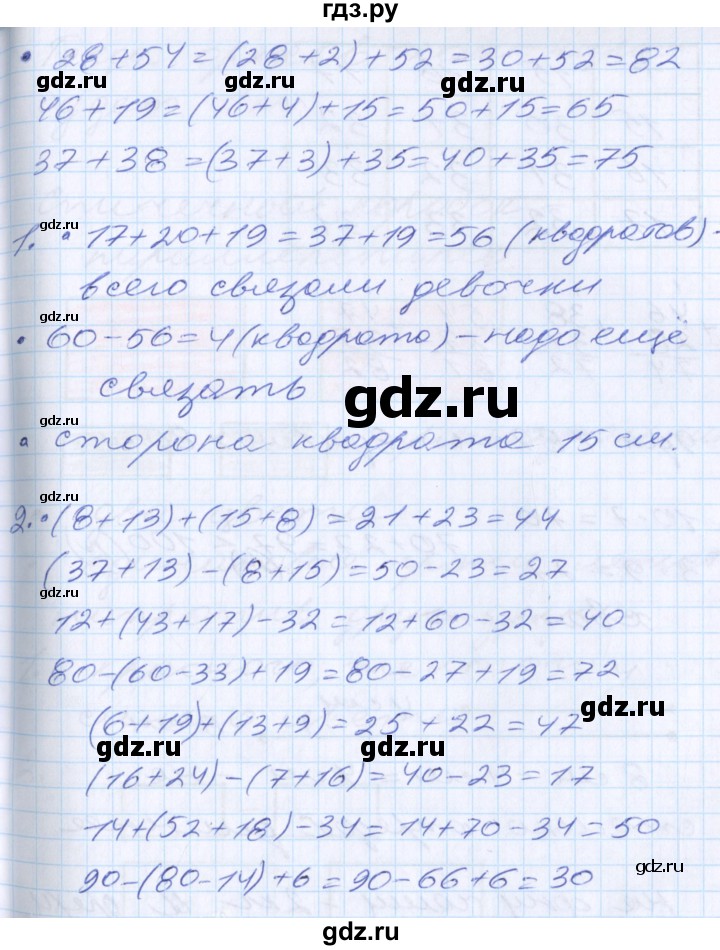 гдз.ру
• 28+54=(28+2)+52=30+52=82
gdz.ru gdz.ru gdz.ru
46+19=(46+4)+15=50+15=65
37+38=(37+3)+35=40+35=75
gdz.ru
1. • 17+20+19=37+19=56 (квадратов)-
всего связали девочки
gdz.ru
• 60-56=4(квадрата)-надо ещё
связать
gdz.ru
• сторона квадрата 15 см.
gdz.ru
2. • (8+13)+(15+8)=21+23=44
(37+13)-(8+15)=50-23=27
gdz.ru
12+(43+17)-32=12+60-32=40
80-(60-33)+19=80-27+19=72
gdz.ru
(6+19)+(13+9)=25+22=47
gdz.ru gdz.ru
(16+24)-(7+16)=40-23=17
14+(52+18)-34=14+70-34=50
gdz.ru
90-(80-14)+6=90-66+6=30
gdz.ru